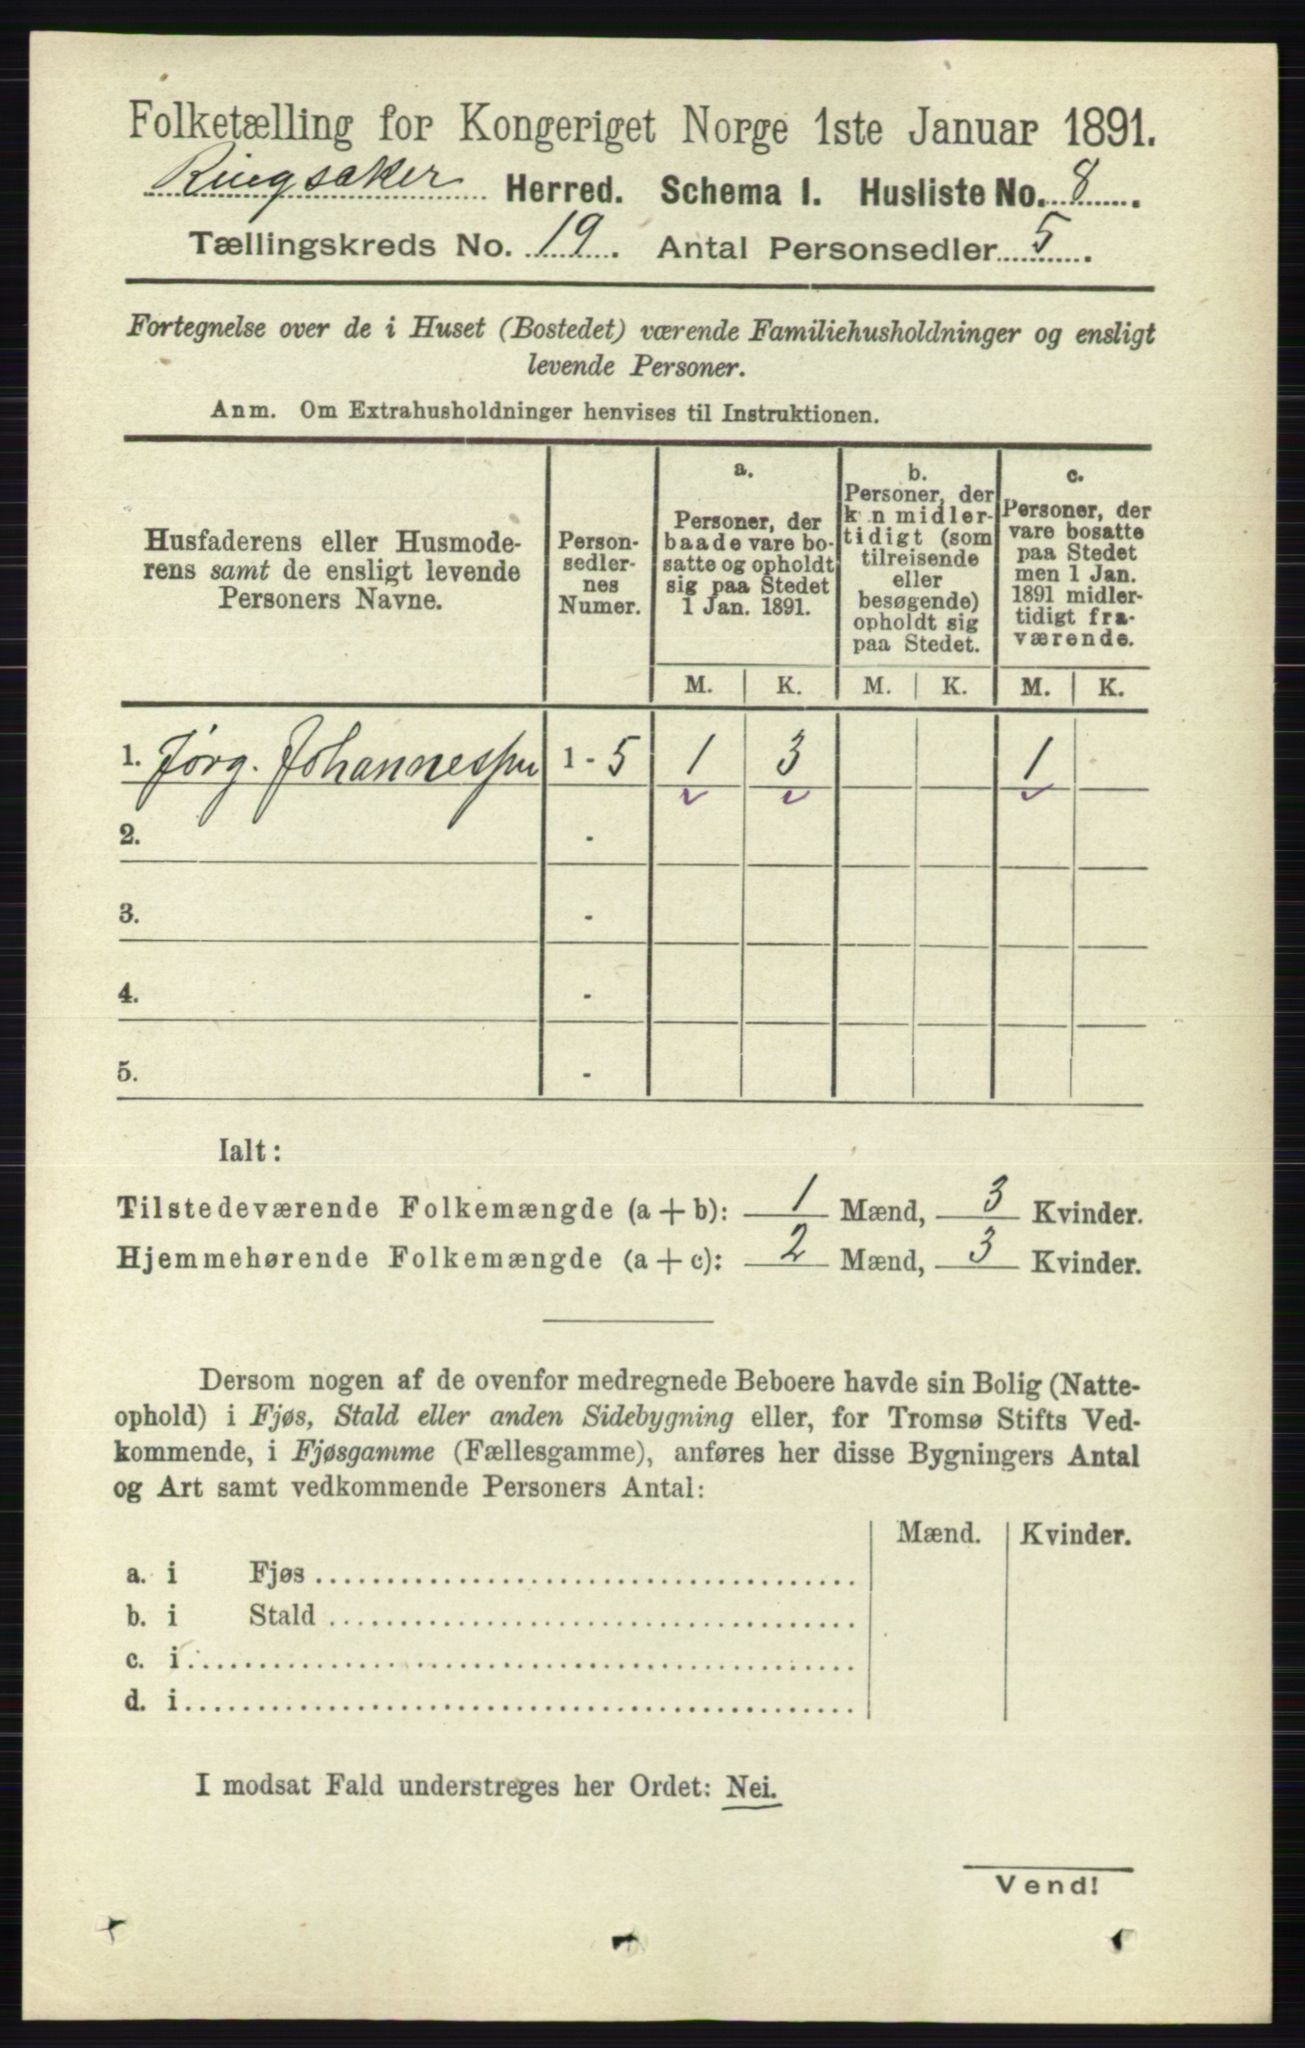 Folketælling for Kongeriget Norge 1ste Januar 1891.
Ringsaker Herred. Schema I. Husliste No. 8.
Tællingskreds No. 19. Antal Personsedler 5.
Fortegnelse over de i Huset (Bostedet) værende Familiehusholdninger og ensligt
levende Personer.
Anm. Om Extrahusholdninger henvises til Instruktionen.
Husfaderens eller Husmode-
rens samt de ensligt levende
Personers Navne.
Person-
sedler-
nes
Numer.
a.
Personer, der
baade vare bo-
satte og opholdt
sig paa Stedet
1 Jan. 1891.
b.
Personer, der
kun midler-
tidigt (som
tilreisende
eller
besøgende)
opholdt sig
paa Stedet.
c.
Personer, der
vare bosatte
paa Stedet
men 1 Jan.
1891 midler-
tidigt fra-
værende.
M. K. M. K. M. K.
1. Jørg. Johannessen 1 - 5 1 3 1
2. -
3. -
4. -
5. -
Ialt:
Tilstedeværende Folkemængde (a + b): 1 Mænd, 3 Kvinder.
Hjemmehørende Folkemængde (a + c): 2 Mænd, 3 Kvinder.
Dersom nogen af de ovenfor medregnede Beboere havde sin Bolig (Natte-
ophold) i Fjøs, Stald eller anden Sidebygning eller, for Tromsø Stifts Ved-
kommende, i Fjøsgamme (Fællesgamme), anføres her disse Bygningers Antal
og Art samt vedkommende Personers Antal:
Mænd. Kvinder.
a. i Fjøs
b. i Stald
c. i
d. i
I modsat Fald understreges her Ordet: Nei.
Vend!